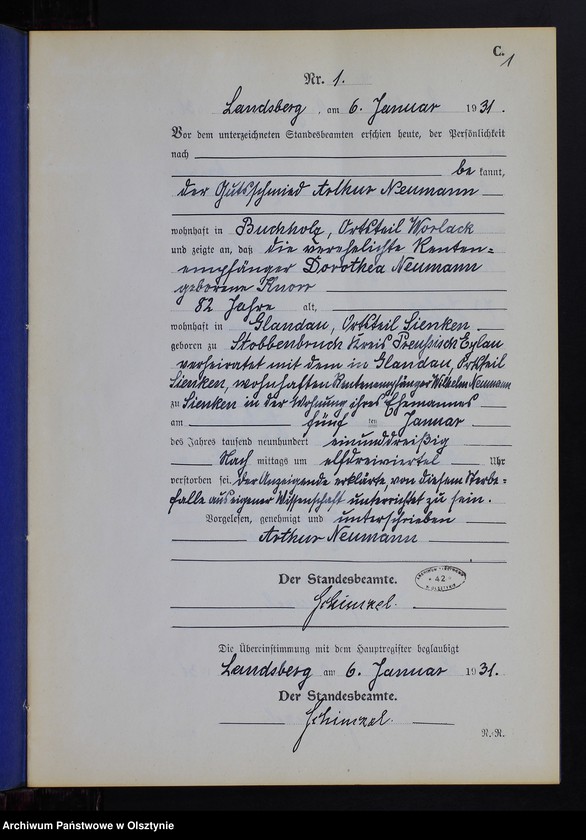 C.
1
Nr. 1.
Landsberg, am 6. Januar 1931.
Vor dem unterzeichneten Standesbeamten erschien heute, der Persönlichkeit
nach
be kannt,
der Gutsschmied Arthur Neumann
wohnhaft in Buchholz, Ortsteil Worlack
und zeigte an, daß die verehelichte Renten-
empfänger Dorothea Neumann
geborene Knorr
82 Jahre alt,
wohnhaft in Glandau, Ortsteil Sienken
geboren zu Stobbenbruch Kreis Preußisch Eylau
verheiratet mit dem in Glandau, Ortsteil
Sienken, wohnhaften Rentenempfänger Wilhelm Neumann
zu Sienken in der Wohnung ihres Ehemannes
am fünf ten Januar
des Jahres tausend neunhundert einunddreißig
Nach mittags um elfdreiviertel Uhr
verstorben sei. Der Anzeigende erklärte, von diesem Sterbe-
falle aus eigener Wissenschaft unterrichtet zu sein.
Vorgelesen, genehmigt und unterschrieben
Arthur Neumann
Der Standesbeamte.
42
Schinkel.
Die Übereinstimmung mit dem Hauptregister beglaubigt
Landsberg am 6. Januar 1931.
Der Standesbeamte.
Schinkel.
N.-R.
Archiwum Państwowe w Olsztynie